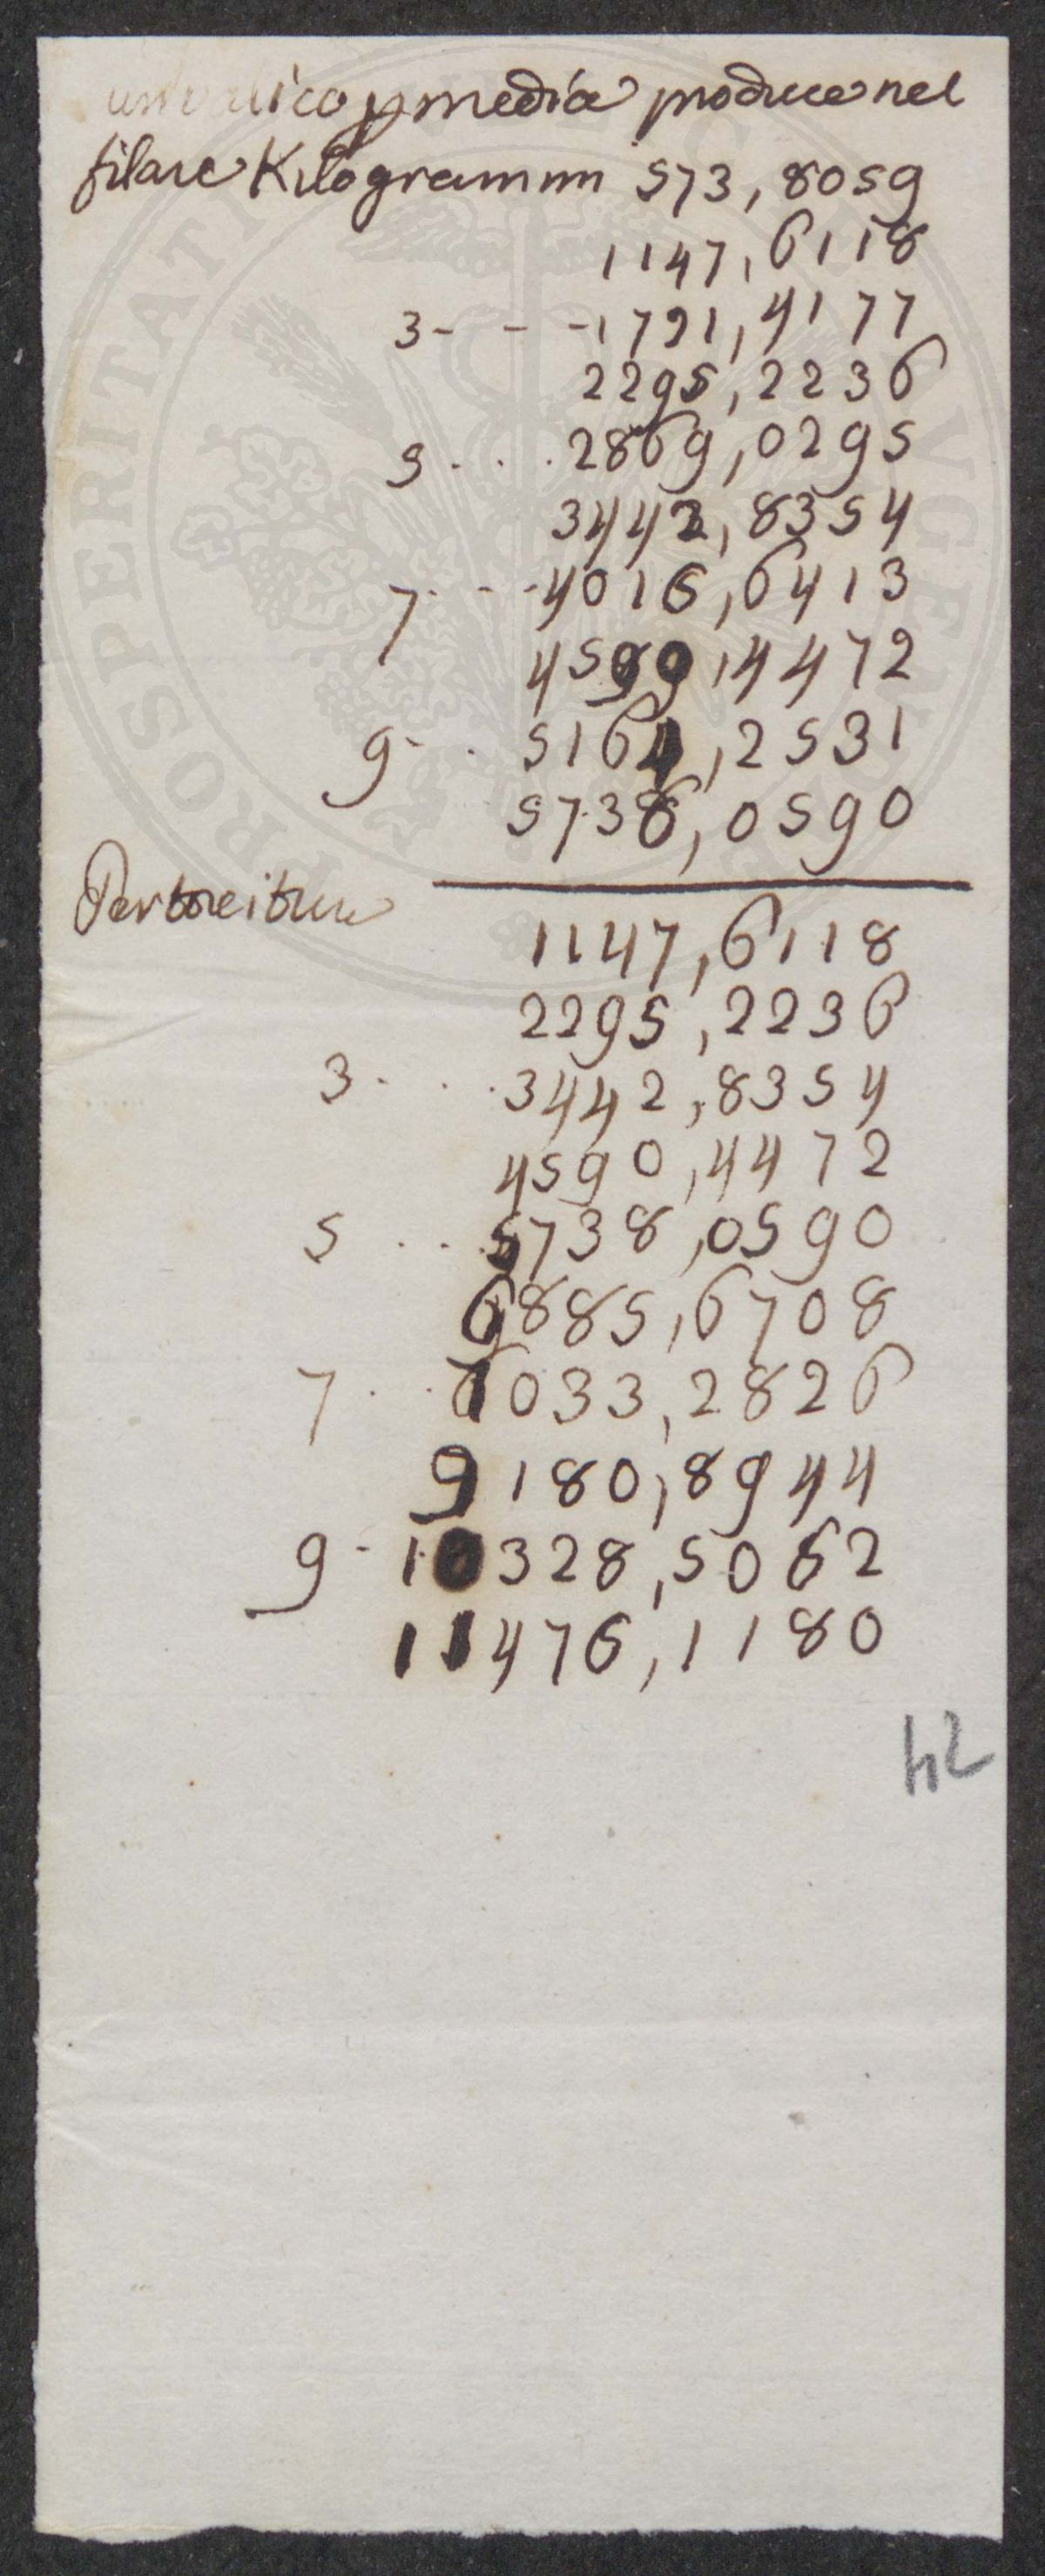 un valico p media produce nel
filare Kilogrammi 573,8059
1147,6118
3 - - - 1721,4177
2295,2236
5 . . . 2869,0295
3442,8354
7 - - - 4016,6413
4590,4472
9 - . 5164,2531
5738,0590
Per torcitura
1147,6118
2295,2236
3 . . . 3442,8354
4590,4472
5 . . . 5738,0590
6885,6708
7 . . 8033,2826
9180,8944
9 - 10328,5062
11476,1180
42